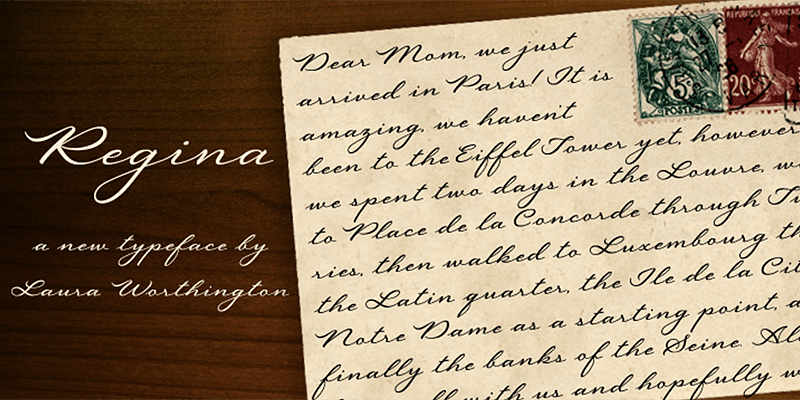 Regina
a new typeface by
Laura Worthington
Dear Mom, we just
arrived in Paris! It is
amazing, we haven't
been to the Eiffel Tower yet, however
we spent two days in the Louvre,
to Place de la Concorde through
ries, then walked to Luxembourg
the Latin quarter, the Ile de la
Notre Dame as a starting point,
finally the banks of the Seine.
with us and hopefully
5c
POSTES
REPUBLIQUE FRANÇAISE
20